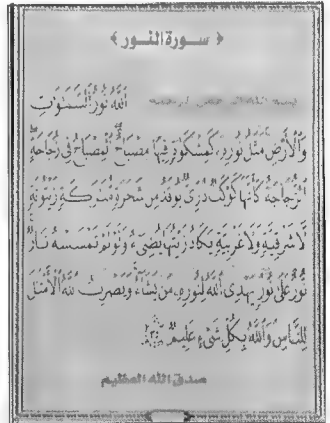 ﴿ سورة النور ﴾
بسم الله الرحمن الرحيم اللَّهُ نُورُ السَّمَوَتِ
وَالْأَرْضِ مَثَلُ نُورِهِ كَمِشْكَوةٍ فِيهَا مِصْبَاحٌ الْمِصْبَاحُ فِي زُجَاجَةٍ
الزُّجَاجَةُ كَأَنَّهَا كَوْكَبٌ دُرِّيٌّ يُوقَدُ مِن شَجَرَةٍ مُبَرَكَةٍ زَيْتُونَةٍ
لَّا شَرْقِيَّةٍ وَلَا غَرْبِيَّةٍ يَكَادُ زَيْتُهَا يُضِيءُ وَلَوْ لَمْ تَمْسَسْهُ نَارٌ
نُّورٌ عَلَى نُورٍ يَهْدِي اللَّهُ لِنُورِهِ مَن يَشَاءُ وَيَضْرِبُ اللَّهُ الْأَمْثَلَ
لِلنَّاسِ وَاللَّهُ بِكُلِّ شَيْءٍ عَلِيمٌ
صدق الله العظيم